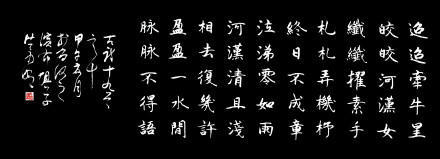 迢迢牽牛星
皎皎河漢女
纖纖擢素手
札札弄機杼
終日不成章
泣涕零如雨
河漢清且淺
相去復幾許
盈盈一水間
脈脈不得語
古詩十九首
之十
甲午五月